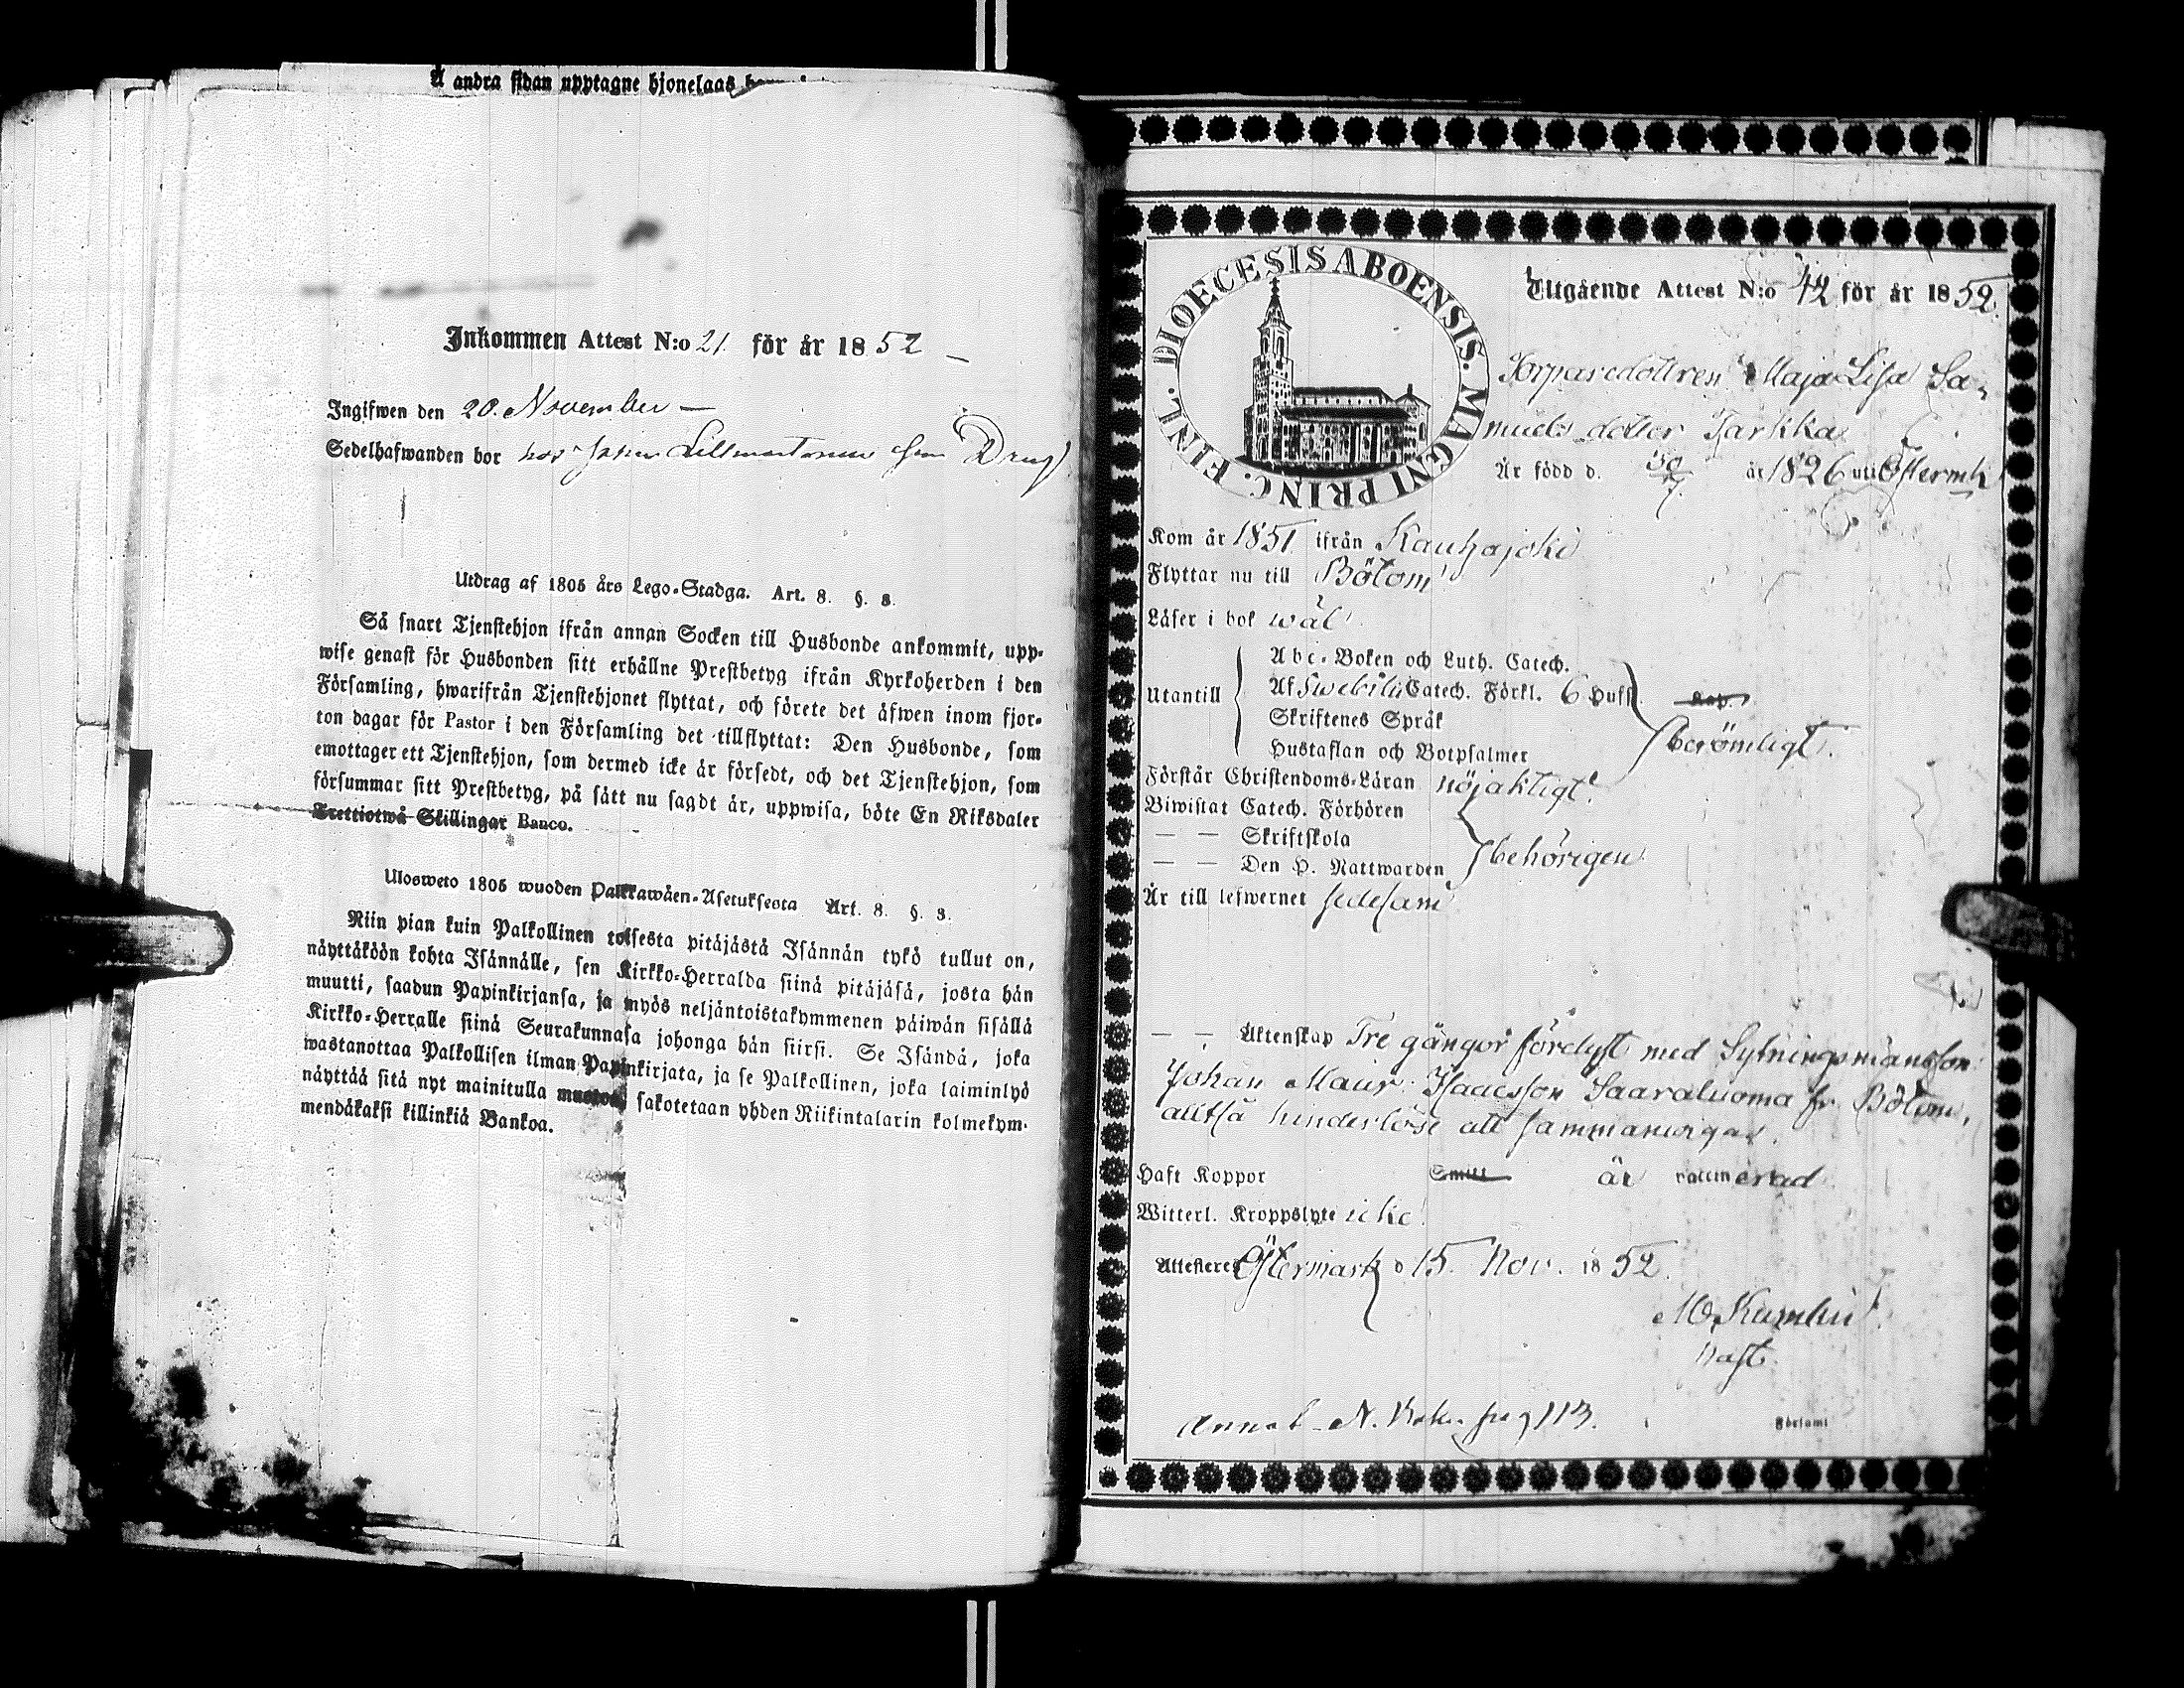 Å andra sidan upptagne hjonelaas
Inkommen Attest N:o 21. för år 1852
Ingifwen den 20. November
Sedelhafwanden bor hos Johan som Dräng
Utdrag af 1805 års Lego-Stadga. Art. 8. §. 3.
Så snart Tjenstehjon ifrån annan Socken till Husbonde ankommit, upp-
wise genast för Husbonden sitt erhållne Prestbetyg ifrån Kyrkoherden i den
Församling, hwarifrån Tjenstehjonet flyttat, och förete det äfwen inom fjor-
ton dagar för Pastor i den Församling det tillflyttat: Den Husbonde, som
emottager ett Tjenstehjon, som dermed icke är försedt, och det Tjenstehjon, som
försummar sitt Prestbetyg, på sätt nu sagdt är, uppwisa, böte En Riksdaler
Trettiotwå Skillingar Banco.
Ulosweto 1805 wuoden Palkkawäen-Asetuksesta Art. 8. §. 3.
Niin pian kuin Palkollinen toisesta pitäjästä Isännän tykö tullut on,
näyttäköön kohta Isännälle, sen Kirkko-Herralda siinä pitäjäsä, josta hän
muutti, saadun Papinkirjansa, ja myös neljäntoistakymmenen päiwän sisällä
Kirkko-Herralle siinä Seurakunnasa johonga hän siirsi. Se Isändä, joka
wastanottaa Palkollisen ilman Papinkirjata, ja se Palkollinen, joka laiminlyö
näyttää sitä nyt mainitulla muotoa, sakotetaan yhden Riikintalarin kolmekym-
mendäkaksi killinkiä Bankoa.
DIOECESIS ABOENSIS. MAGNI PRINC. FINL.
Utgående Attest N:o 42 för år 1852.
Torparedottren Maja Lisa Sa-
muels dotter Jarkka
Är född d. 30/7. år 1826 uti Östermk
Kom år 1851 ifrån Kauhajoki
Flyttar nu till Bötom
Läser i bok wäl
Utantill
Abc-Boken och Luth. Catech.
Af Swebilii Catech. Förkl. 6 Hufst. Kap.
Skriftenes Språk
Hustaflan och Botpsalmer
berömligt.
Förstår Christendoms-Läran nöjaktigt.
Biwistat Catech. Förhören
— — Skriftskola
— — Den H. Nattwarden
behörigen
Är till lefwernet sedesam
— — Äktenskap Tre gångor förelyst med Sytningsmansson
Johan Maur. Isaacsson Saaraluoma fr. Bötom,
alltså hinderlöse att sammanwigas.
Haft Koppor Smitt är vaccinerad
Witterl. Kroppslyte icke
Attesteres Östermark d 15. Nov. 1852.
Past.
N. Boken pag 113.
Församl